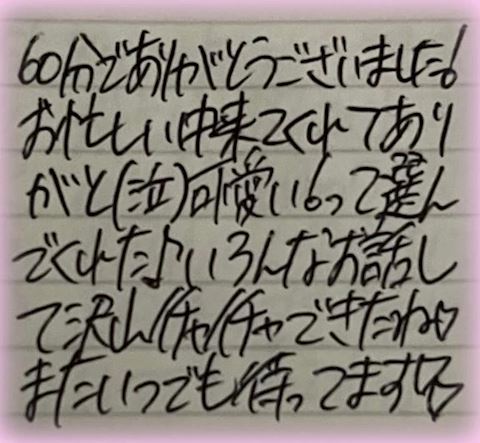 60分でありがとうございました!
お忙しい中来てくれてあり
がと(泣)可愛いって選ん
でくれた♪いろんなお話し
て沢山イチャイチャできたね♡
またいつでも待ってます♡